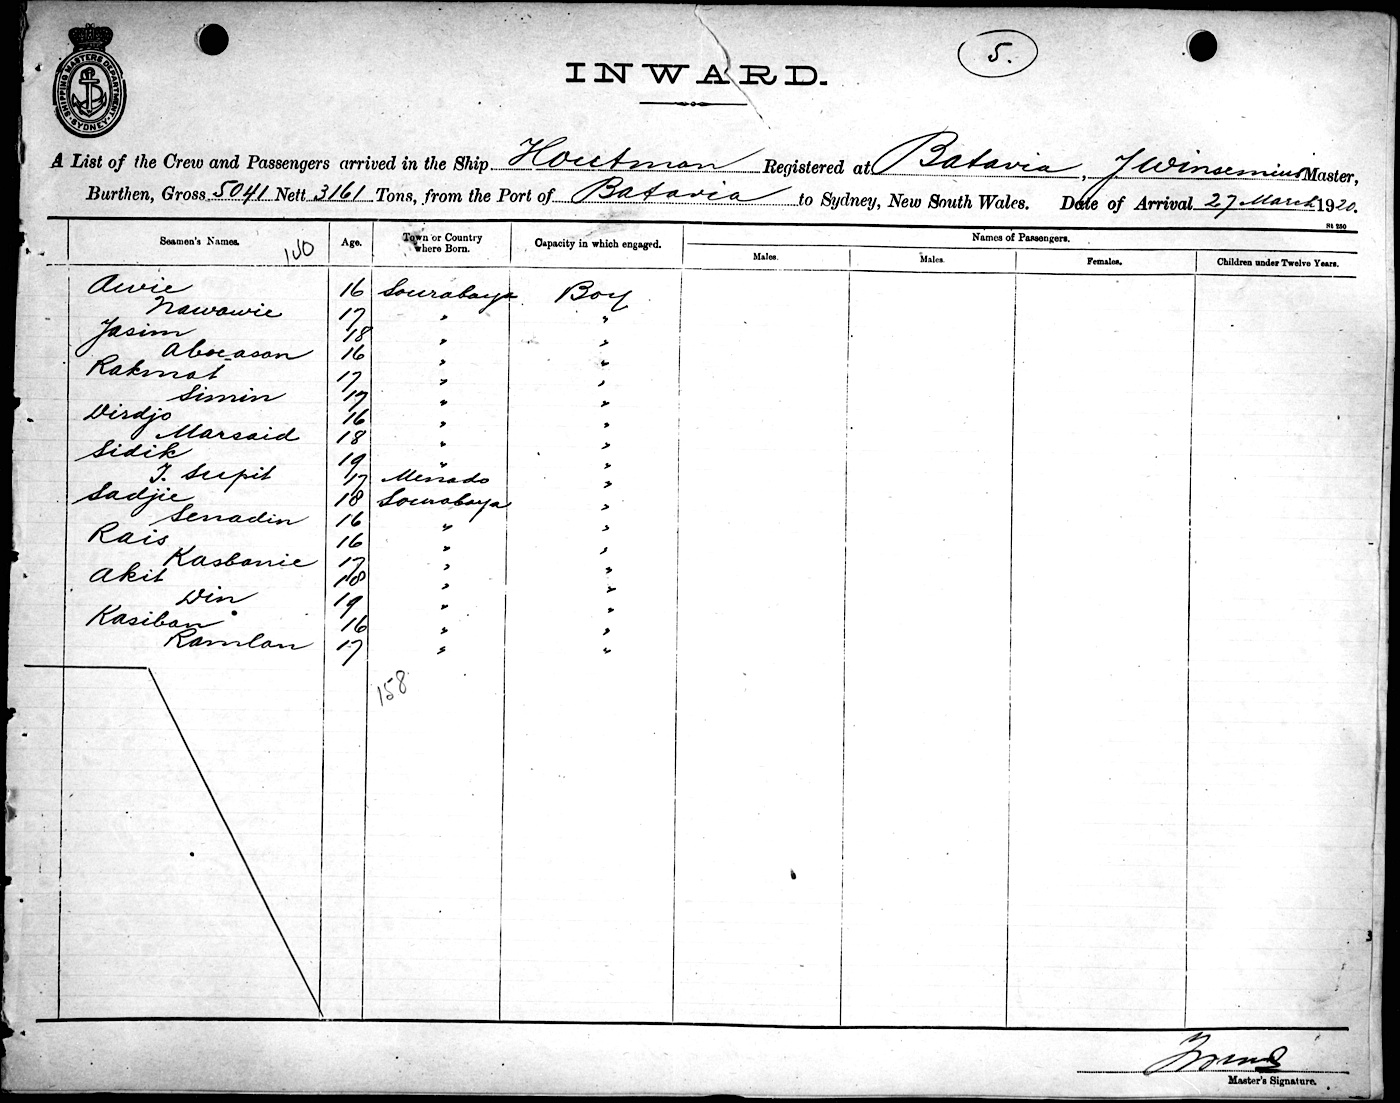 SHIPPING MASTERS DEPARTMENT. SYDNEY
5.
INWARD.
A List of the Crew and Passengers arrived in the Ship Houtman Registered at Batavia, J Winsemius Master,
Burthen, Gross 5041 Nett 3161 Tons, from the Port of Batavia to Sydney, New South Wales. Date of Arrival 27 March 1920.
St 250
Seamen's Names. Age. Town or Country where Born. Capacity in which engaged. Names of Passengers.
Males. Males. Females. Children under Twelve Years.
Awie 16 Sourabaya Boy
Nawawie 17 " "
Jasim 18 " "
Aboeasan 16 " "
Rakmat 17 " "
Simin 17 " "
Dirdjo 16 " "
Marsaid 18 " "
Sidik 19 " "
T. Supit 17 Menado "
Sadjie 18 Sourabaya "
Senadin 16 " "
Rais 16 " "
Kasbanie 17 " "
Akit 18 " "
Din 19 " "
Kasiban 16 " "
Ramlan 17 " "
158
Master's Signature.